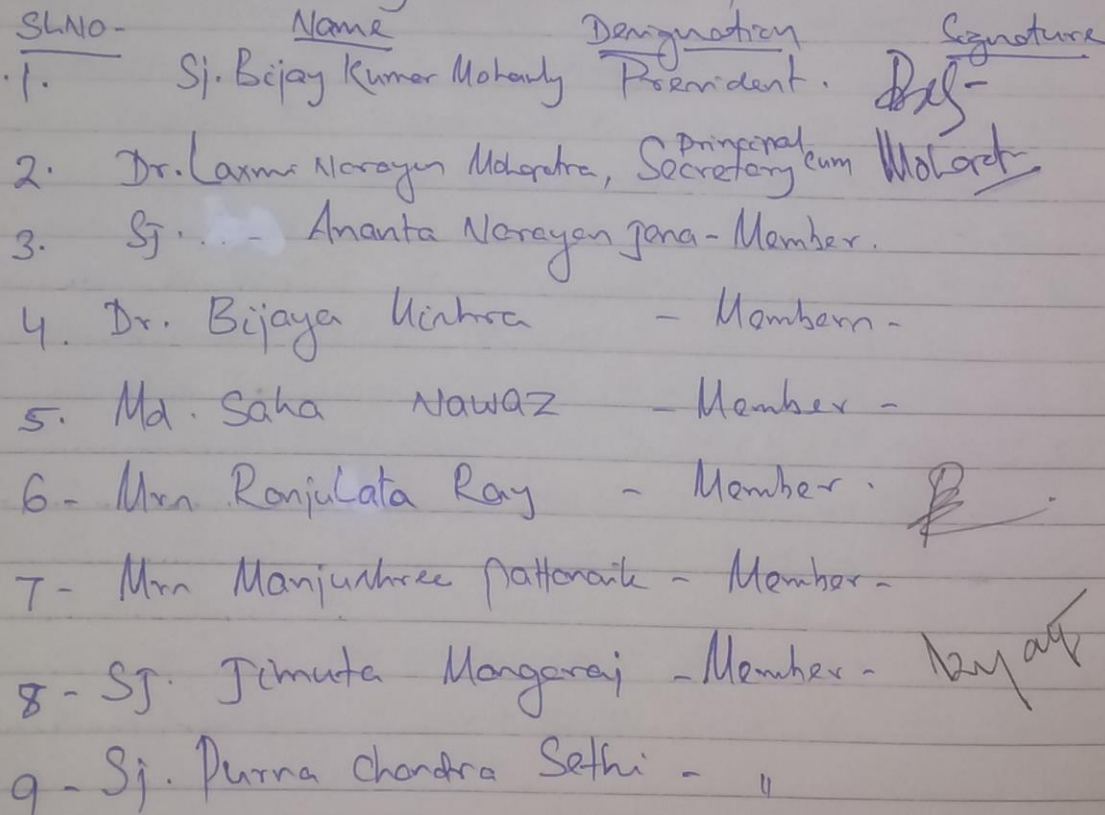 Sl.No- Name Designation Signature
1. Sj. Bijay Kumar Mohanty President.
2. Dr. Laxmi Narayan Mohapatra, Principal cum Secretary
3. Sj. Ananta Narayan Jena - Member.
4. Dr. Bijaya Mishra - Member -
5. Md. Saha Nawaz - Member -
6- Mrs Ranjulata Ray - Member.
7- Mrs Manjushree Pattanaik - Member -
8- Sj. Jimuta Mangaraj - Member -
9- Sj. Purna Chandra Sethi - "